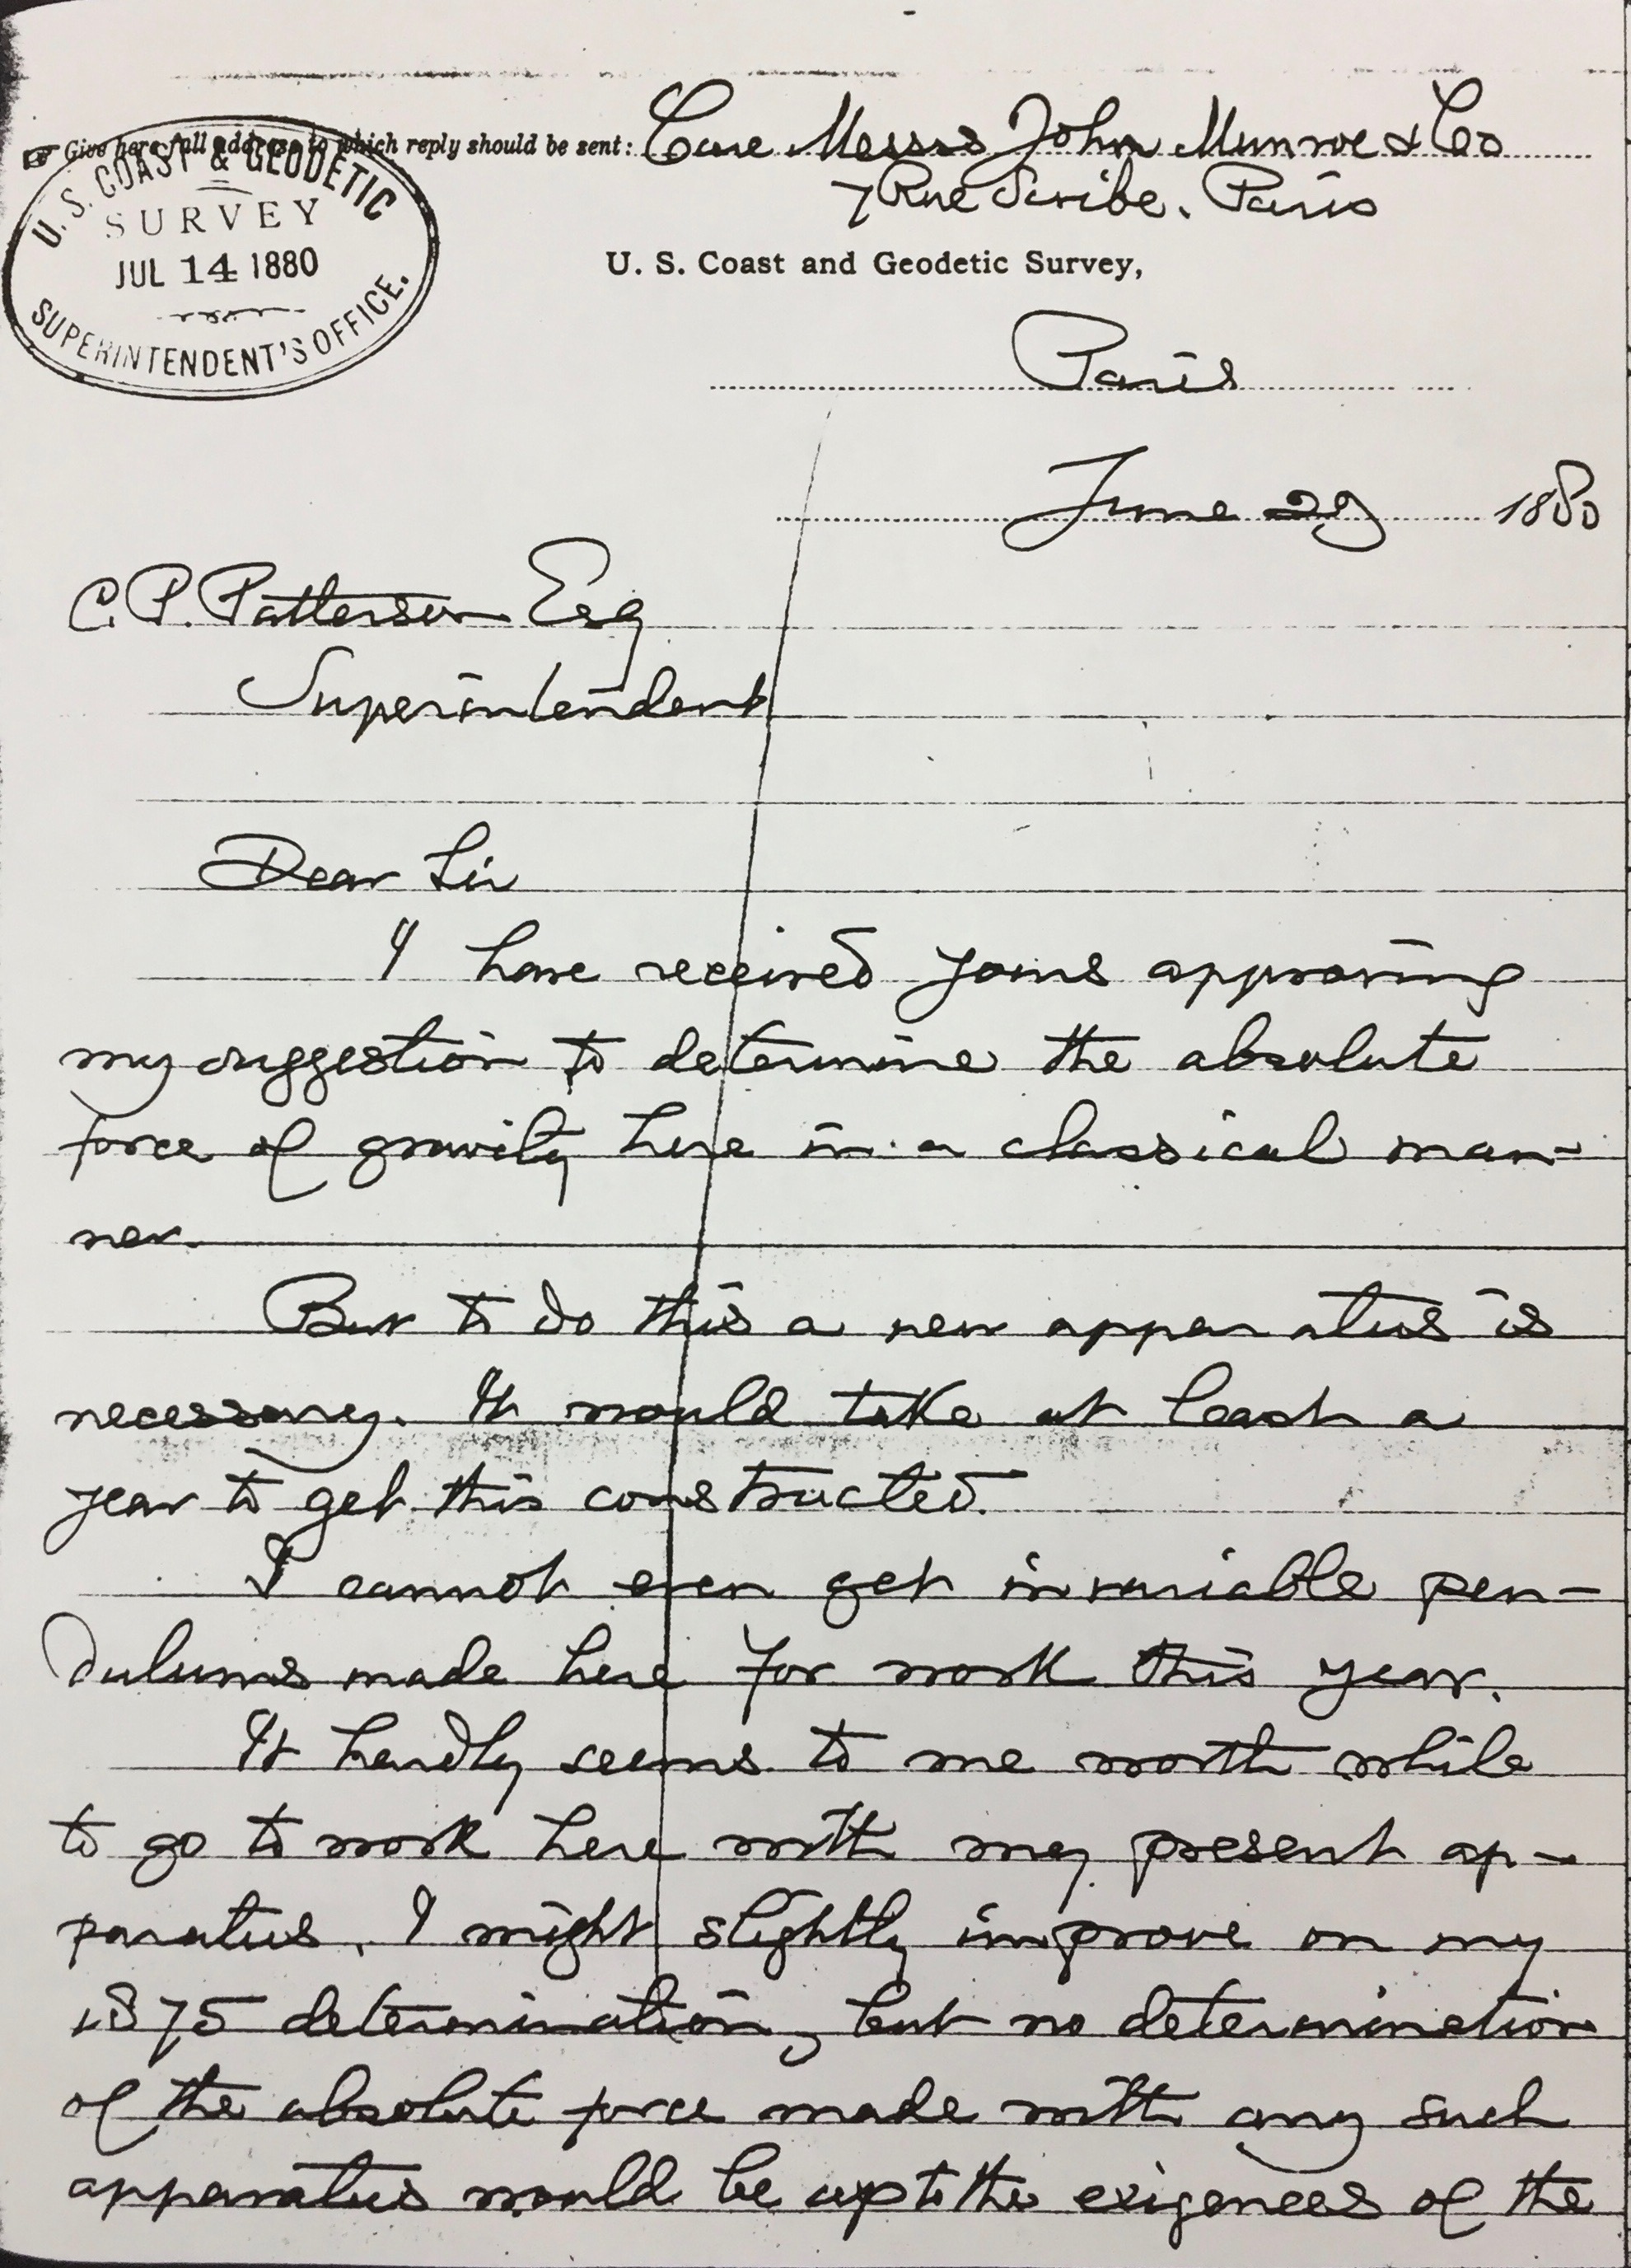 ☞ Give here full address to which reply should be sent: Care Messrs John Munroe & Co
7 Rue Scribe. Paris
U. S. COAST & GEODETIC
SURVEY
JUL 14 1880
SUPERINTENDENT'S OFFICE.
U. S. Coast and Geodetic Survey,
Paris
June 29 1880
C. P. Patterson Esq
Superintendent
Dear Sir
I have received yours approving
my suggestion to determine the absolute
force of gravity here in a classical man-
ner.
But to do this a new apparatus is
necessary. It would take at least a
year to get this constructed.
I cannot even get invariable pen-
dulums made here for work this year.
It hardly seems to me worth while
to go to work here with my present ap-
paratus. I might slightly improve on my
1875 determination, but no determination
of the absolute force made with any such
apparatus would be up to the exigences of the